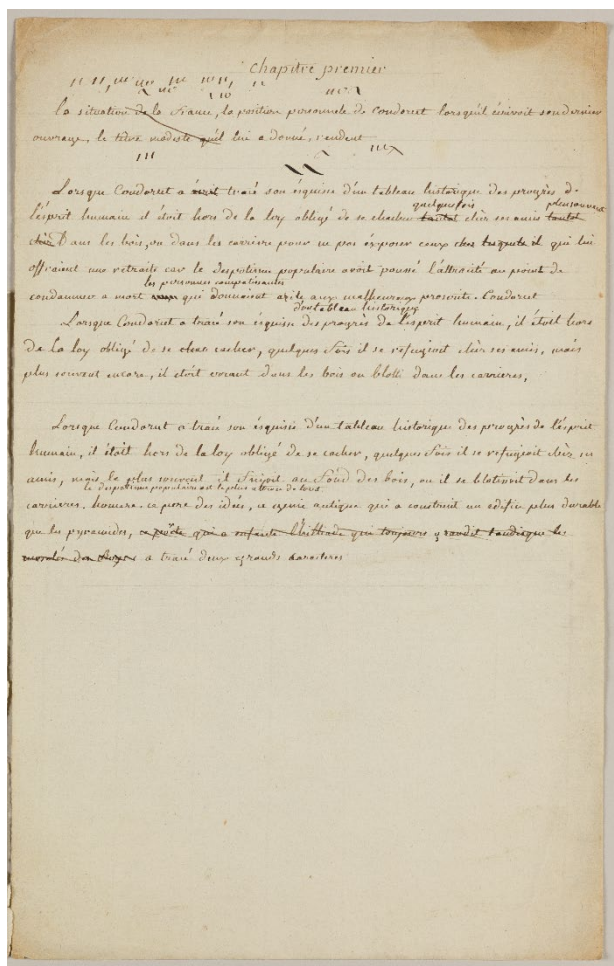 chapitre premier
la situation de la France, la position personnele de Condorcet lorsqu'il écrivoit son dernier
ouvrage, le titre modeste qu'il lui a donné, rendent
Lorsque Condorcet a écrit tracé son esquisse d'un tableau historique des progrès de
quelquefois plus souvent
l'esprit humain il étoit hors de la loy obligé de se cacher tantot chèz ses amis tantot
dans les bois, ou dans les carrières pour ne pas exposer ceux chez lesquels il qui lui
offraient une retraite car le despotisme populaire avoit poussé l'attrocité au point de
les personnes compatissantes
condamner a mort qui donnaient azile aux malheureux proscrits. Condorcet
d'un tableau historique
Lorsque Condorcet a tracé son esquisse des progrès de l'esprit humain, il étoit hors
de la loy obligé de se cacher, quelques fois il se refugioit chèz ses amis, mais
plus souvent encore, il étoit errant dans les bois ou blotti dans les carrieres,
Lorsque Condorcet a tracé son esquisse d'un tableau historique des progrès de l'esprit
humain, il étoit hors de la loy obligé de se cacher, quelques fois il se refugioit chèz ses
amis, mais le plus souvent il fuyoit au fond des bois, ou il se blotissoit dans les
le despotisme populaire est le plus atroce de tous
carrieres. homere, ce pere des idées, ce genie antique qui a construit un edifice plus durable
que les pyramides, ce poëte qui a enfanté l'illiade qui toujours grandit tandisque les
a tracé deux grands caracteres